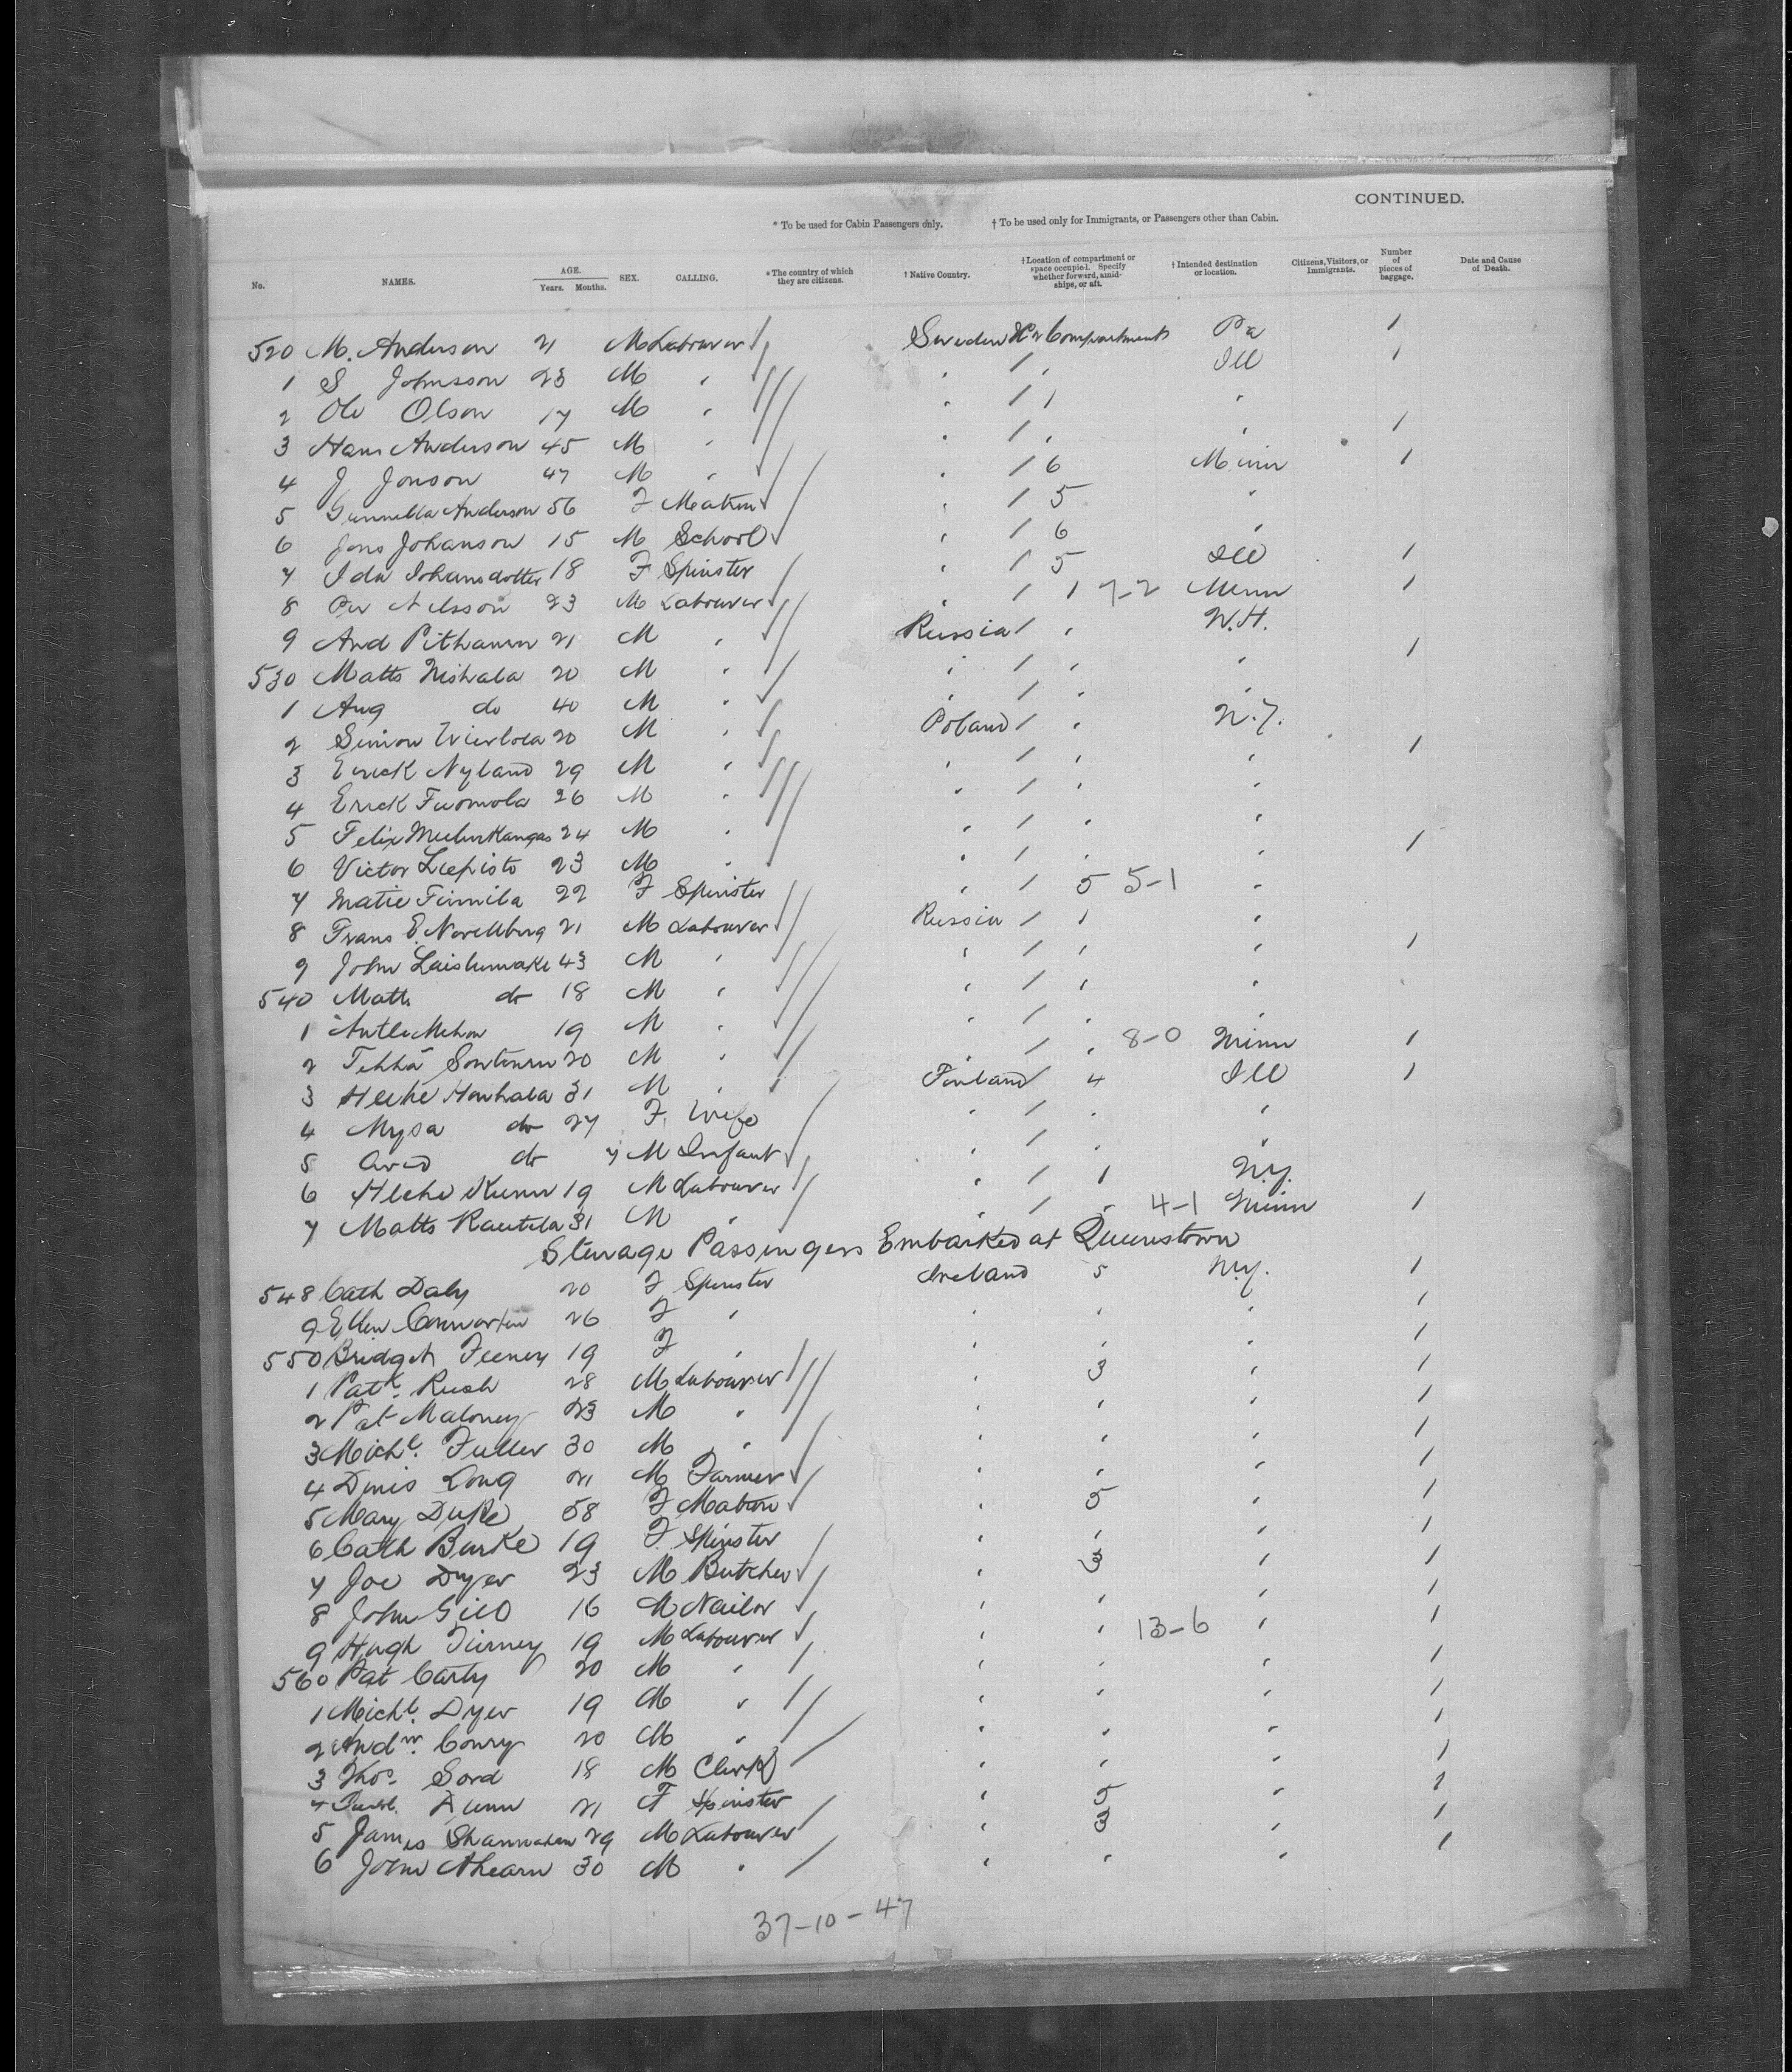 CONTINUED.
* To be used for Cabin Passengers only. † To be used only for Immigrants, or Passengers other than Cabin.
No. NAMES. AGE. Years. Months. SEX. CALLING. * The country of which they are citizens. † Native Country. † Location of compartment or space occupied. Specify whether forward, amidships, or aft. † Intended destination or location. Citizens, Visitors, or Immigrants. Number of pieces of baggage. Date and Cause of Death.
520 M. Anderson 21 M Labourer Sweden Compartment Pa 1
1 S Johnsson 23 M " " / " Ill 1
2 Ole Olson 17 M " " / 1 "
3 Hans Anderson 45 M " " / " " 1
4 J Jonson 47 M " " / 6 Minn 1
5 Gunnella Anderson 56 F Matron " / 5 "
6 Jons Johanson 15 M School " / 6 "
7 Ida Johansdotter 18 F Spinster " / 5 Ill 1
8 Per Nilsson 23 M Labourer " / 1 7-2 Minn 1
9 And 21 M " Russia / " N.H.
530 Matts 20 M " " / " " 1
1 Aug do 40 M " " / " "
2 Simon 20 M " Poland / " N.Y.
3 Erick Nyland 29 M " " / " " 1
4 Erick Tuomola 26 M " " / " "
5 Felix 24 M " " / " "
6 Victor Liepisto 23 M " " / " " 1
7 Matie Finnila 22 F Spinster " / 5 5-1 "
8 Frans E. 21 M Labourer Russia / 1 "
9 John 43 M " " / " " 1
540 Matts do 18 M " " / " "
1 19 M " " / " "
2 20 M " " / " 8-0 Minn 1
3 31 M " Finland / 4 Ill 1
4 Mysa do 27 F. Wife " / " "
5 do 7 M Infant " / " "
6 19 M Labourer " / 1 N.Y.
7 Matts Rautila 31 M " " / " 4-1 Minn 1
Steerage Passengers Embarked at Queenstown
548 Cath Daly 20 F Spinster Ireland 5 N.Y. 1
9 Ellen 26 F " " " " 1
550 Bridget Feeney 19 F " " " " 1
1 Patk. Rush 28 M Labourer " 3 " 1
2 Pat Maloney 23 M " " " " 1
3 Michl. Fuller 30 M " " " " 1
4 Denis Long 21 M Farmer " " " 1
5 Mary Duke 58 F Matron " 5 " 1
6 Cath Burke 19 F. Spinster " " " 1
7 Joe Dyer 23 M Butcher " 3 " 1
8 John Gill 16 M Nailor " " " 1
9 Hugh Tierney 19 M Labourer " " 13-6 " 1
560 Pat Carty 20 M " " " " 1
1 Michl. Dyer 19 M " " " " 1
2 Andw. Conry 20 M " " " " 1
3 Thos. Sord 18 M Clerk " " " 1
4 Dunn 21 F Spinster " 5 " 1
5 James Shannahan 29 M Labourer " 3 " 1
6 John Ahearn 30 M " " " " 1
37-10-47